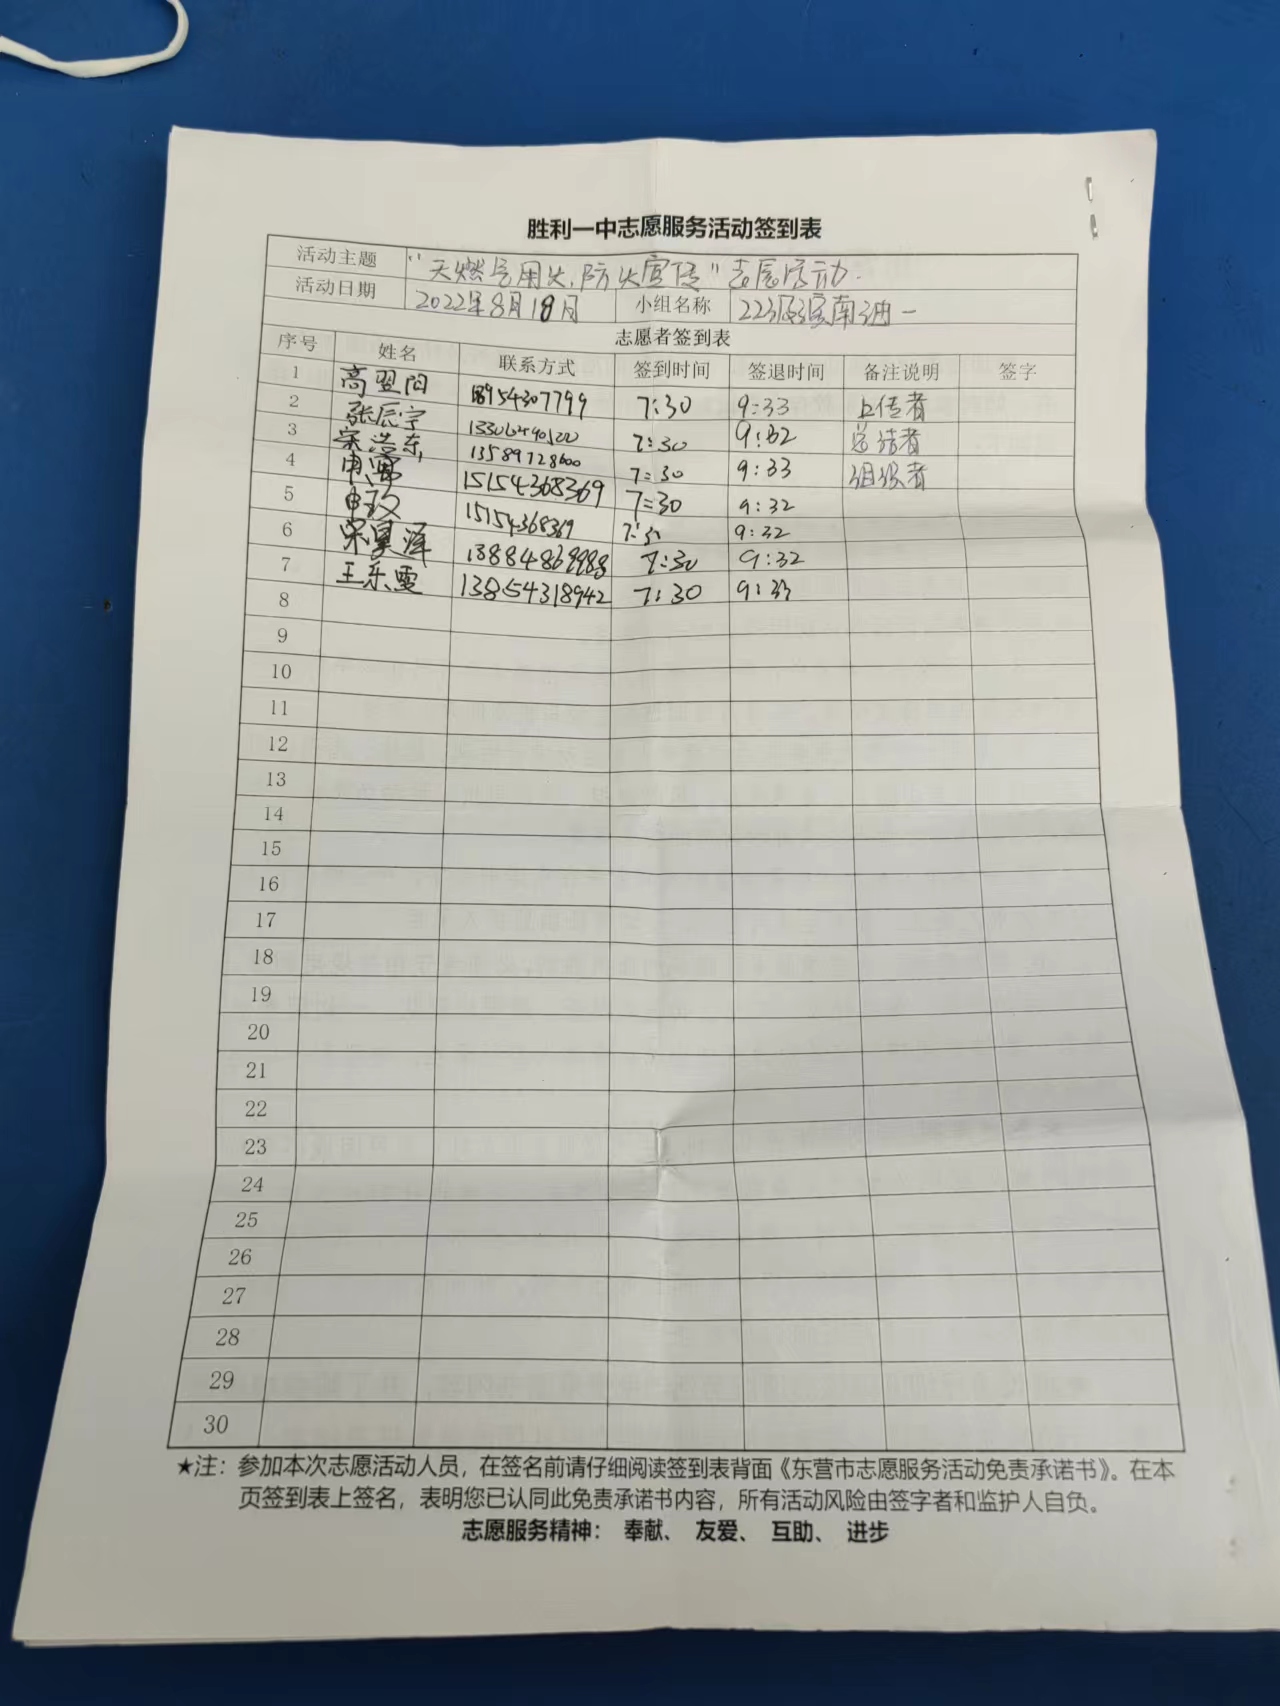 胜利一中志愿服务活动签到表
活动主题 “天燃气用火,防火宣传”志愿活动.
活动日期 2022年8月18月 小组名称 22级滨南油一
志愿者签到表
序号 姓名 联系方式 签到时间 签退时间 备注说明 签字
1 高翌阳 18954307799 7:30 9:33 上传者
2 张辰宁 7:30 9:32 总结者
3 宋浩东 13589728600 7:30 9:33 组织者
4 15154368369 7:30 9:32
5 申政 15154368369 7:30 9:32
6 宋昊泽 7:30 9:32
7 王乐雯 13854318942 7:30 9:33
8
9
10
11
12
13
14
15
16
17
18
19
20
21
22
23
24
25
26
27
28
29
30
★注：参加本次志愿活动人员，在签名前请仔细阅读签到表背面《东营市志愿服务活动免责承诺书》。在本
页签到表上签名，表明您已认同此免责承诺书内容，所有活动风险由签字者和监护人自负。
志愿服务精神： 奉献、 友爱、 互助、 进步